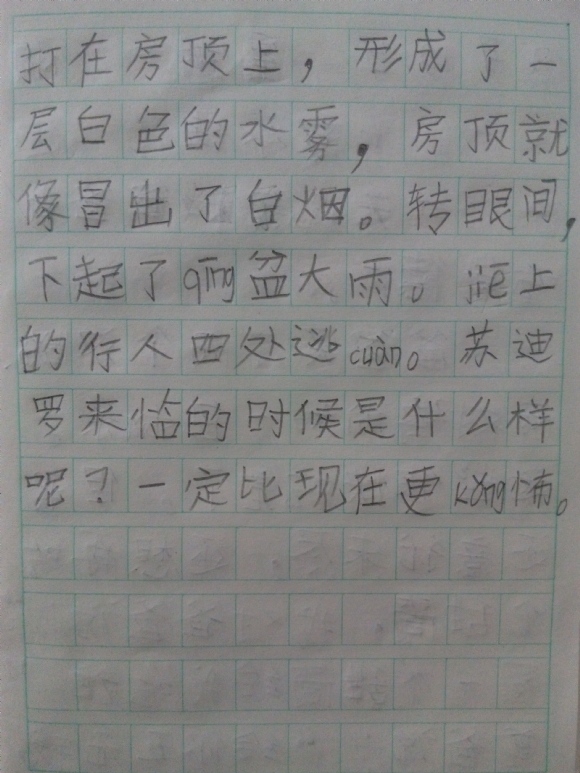 打在房顶上，形成了一
层白色的水雾，房顶就
像冒出了白烟。转眼间，
下起了qīng盆大雨。jiē上
的行人四处逃cuàn。苏迪
罗来临的时候是什么样
呢？一定比现在更kǒng怖。